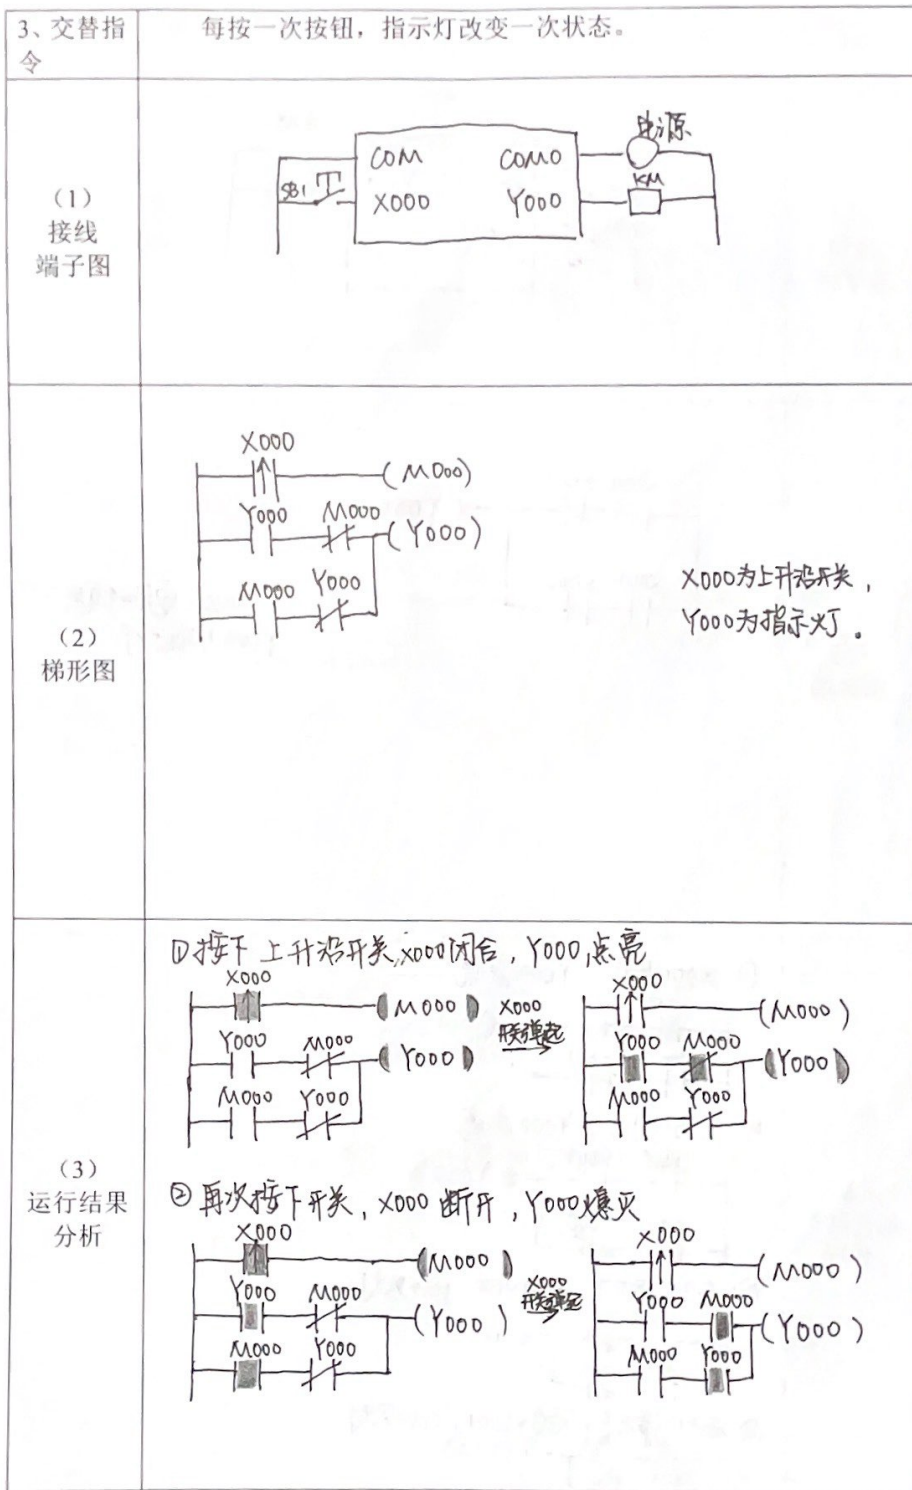 3、交替指
令
每按一次按钮，指示灯改变一次状态。
（1）
接线
端子图
电源
COM COM0
KM
SB1
X000 Y000
（2）
梯形图
X000
(M000)
Y000 M000
(Y000)
M000 Y000
X000为上升沿开关，
Y000为指示灯。
（3）
运行结果
分析
①按下上升沿开关,X000闭合，Y000点亮
X000
(M000)
Y000 M000
(Y000)
M000 Y000
X000
开关弹起
X000
(M000)
Y000 M000
(Y000)
M000 Y000
②再次按下开关，X000断开，Y000熄灭
X000
(M000)
Y000 M000
(Y000)
M000 Y000
X000
开关弹起
X000
(M000)
Y000 M000
(Y000)
M000 Y000